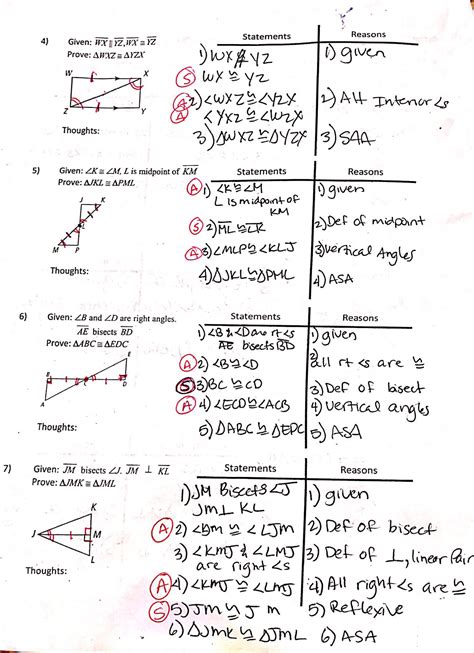 4) Given: WX ∥ YZ, WX ≅ YZ
Prove: ΔWXZ ≅ ΔYZX
W X
Z Y
Thoughts:
Statements Reasons
1) WX ∦ YZ 1) given
Ⓢ WX ≅ YZ
Ⓐ 2) <WXZ ≅ <YZX 2) Alt Interior <s
Ⓐ <YXZ ≅ <WZX
3) ΔWXZ ≅ ΔYZX 3) SAA
5) Given: ∠K ≅ ∠M, L is midpoint of KM
Prove: ΔJKL ≅ ΔPML
J K
L
M P
Thoughts:
Statements Reasons
Ⓐ 1) <K ≅ <M 1) given
L is midpoint of
KM
Ⓢ 2) ML ≅ LK 2) Def of midpoint
Ⓐ 3) <MLP ≅ <KLJ 3) Vertical Angles
4) ΔJKL ≅ ΔPML 4) ASA
6) Given: ∠B and ∠D are right angles.
AE bisects BD
Prove: ΔABC ≅ ΔEDC
E
A
Thoughts:
Statements Reasons
1) <B & <D are rt <s 1) given
AE bisects BD
Ⓐ 2) <B ≅ <D 2) all rt <s are ≅
Ⓢ 3) BC ≅ CD 3) Def of bisect
Ⓐ 4) <ECD ≅ <ACB 4) Vertical angles
5) ΔABC ≅ ΔEDC 5) ASA
7) Given: JM bisects ∠J. JM ⊥ KL
Prove: ΔJMK ≅ ΔJML
K
J M
L
Thoughts:
Statements Reasons
1) JM Bisects <J 1) given
JM ⊥ KL
Ⓐ 2) ≅ <LJM 2) Def of bisect
3) <KMJ & <LMJ 3) Def of ⊥, linear Pair
are right <s
Ⓐ 4) <KMJ ≅ <LMJ 4) All right <s are ≅
Ⓢ 5) JM ≅ JM 5) Reflexive
6) ΔJMK ≅ ΔJML 6) ASA